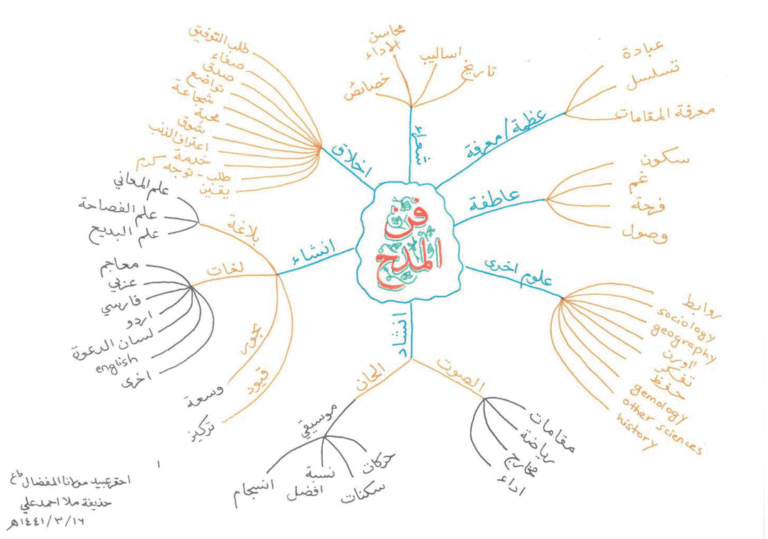 فن
المدح
شعراء
محاسن
الأداء
اساليب
تاريخ
خصائص
عظمة/معرفة
عبادة
تسلسل
معرفة المقامات
عاطفة
سكون
غم
فرحة
وصول
علوم اخرى
روابط
sociology
geography
اوزن
تفكر
حفظ
gemology
other sciences
history
انشاد
الصوت
مقامات
رياضة
مخارج
اداء
الحان
موسيقي
حركات
سكنات
نسبة
افضل
انسجام
انشاء
بلاغة
علم المعاني
علم الفصاحة
علم البديع
لغات
معاجم
عربي
فارسي
اردو
لسان الدعوة
english
اخرى
بحور
وسعة
قيود
تركيز
اخلاق
طلب التوفيق
صفاء
صدق
تواضع
شجاعة
محبة
شوق
اعتراف الذنب
خدمة
طلب - توجه كريم
يقين
احقر عبيد مولانا المفضال طع
حذيفة ملا احمد علي
١٤٤١/٣/١٦هـ